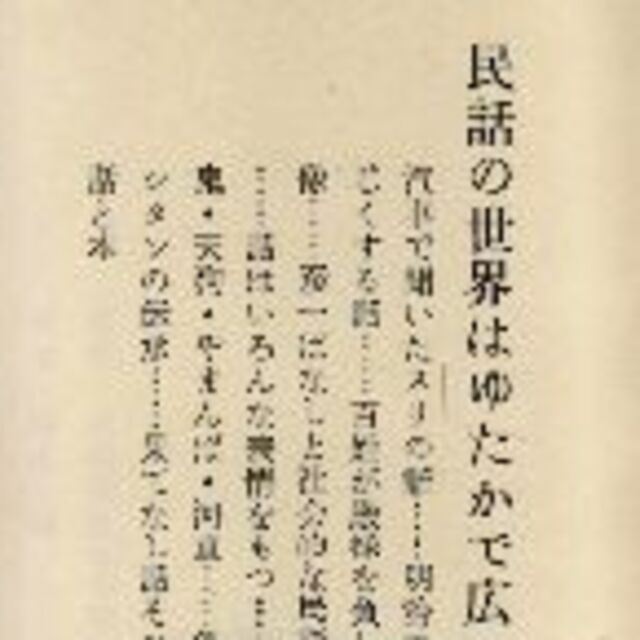 民話の世界はゆたかで広
汽車で聞いたスリの話……明治
くする話……百姓が殿様を負
像……彦一ばなしと社会的な民
……話はいろんな表情をもつ……
鬼・天狗・やまんば・河童……
シタンの伝承……果てなし話
話と本